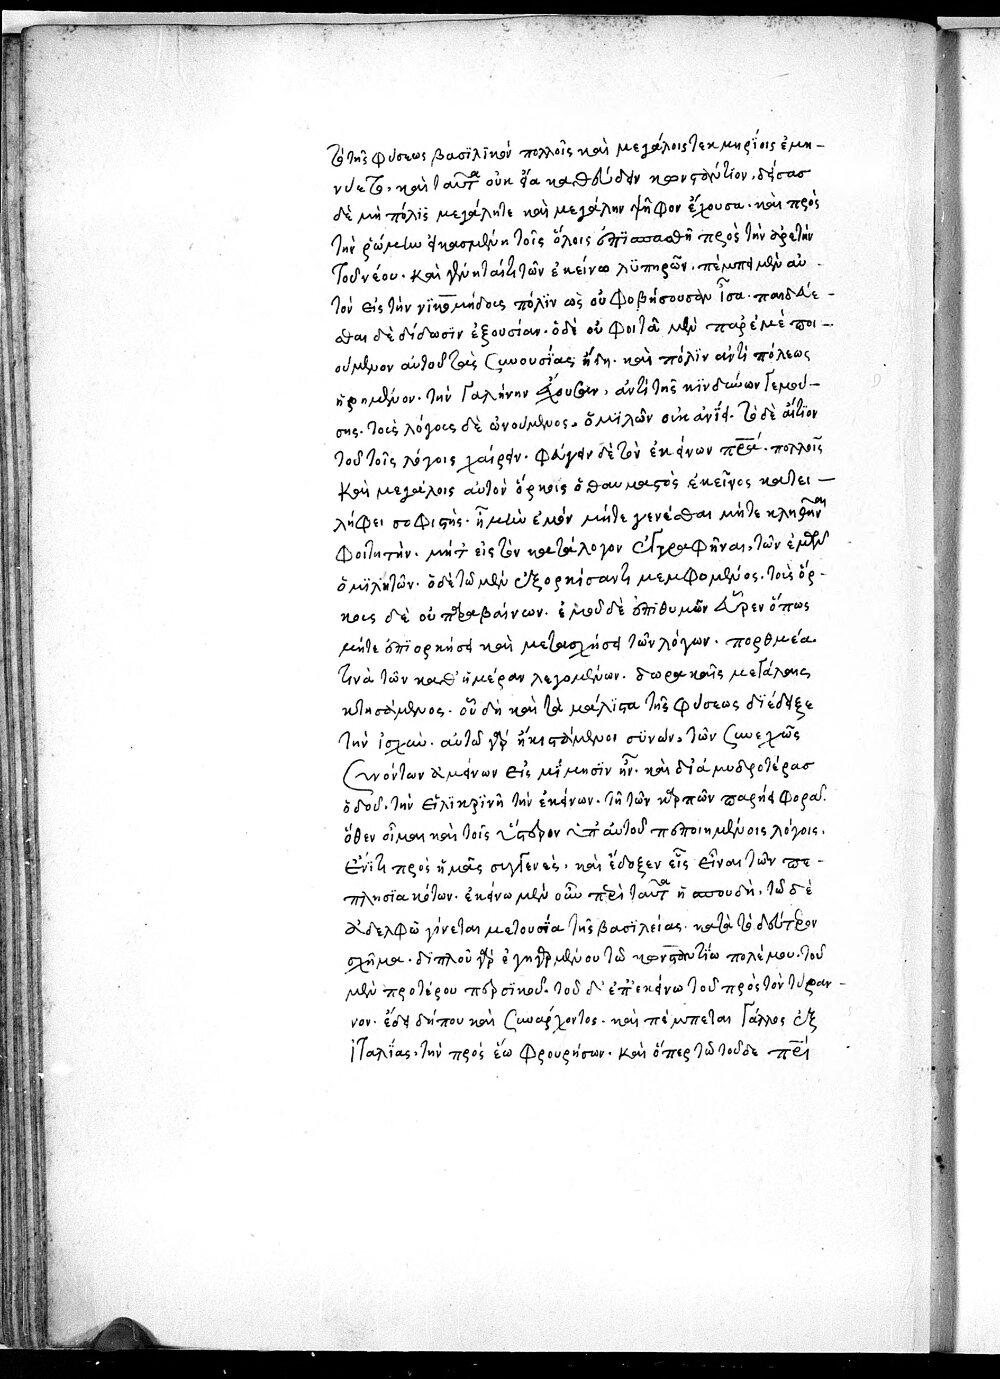 τὸ τῆς φύσεως βασϊλϊκὸν πολλοῖς καὶ μεγάλοις τεκμηρίοις ἐμη-
νύετο, καὶ ταῦτα οὐκ εἴα καθεύδειν κωνστάντιον, δείσας
δὲ μὴ πόλϊς μεγάλη τε καὶ μεγάλην ψῆφον ἔχουσα. καὶ πρὸς
τὴν ῥώμην εἰκασμένη τοῖς ὅλοις ἐπϊσπασθῆ πρὸς τὴν ἀρετὴν
τοῦ νέου. καὶ γένηταί τι τῶν ἐκείνω λϋπηρῶν. πέμπει μὲν αὐ-
τὸν εἰς τὴν νϊκομήδους πόλϊν ὡς οὐ φοβήσουσαν ἶσα. παιδεύε-
σθαι δὲ δίδωσϊν ἐξουσίαν. ὁ δὲ οὐ φοιτᾶ μὲν παρ' ἐμὲ ποι-
ούμενον αὐτοῦ τὰς συνουσίας ἤδη. καὶ πόλϊν ἀντὶ πόλεως
ἡρημένον. τὴν γαλήνην ἄγουσαν, ἀντὶ τῆς κϊνδύνων γεμού-
σης. τοὺς λόγους δὲ ὠνούμενος. ὁμϊλῶν οὐκ ἀνΐει. τὸ δὲ αἴτϊον
τοῦ τοῖς λόγοις χαίρειν. φεύγειν δὲ τὸν ἐκείνων πατέρα. πολλοῖς
καὶ μεγάλοις αὐτὸν ὅρκοις ὁ θαυμαστὸς ἐκεῖνος κατει-
λήφει σοφιστής. ἦ μὴν ἐμὸν μήτε γενέσθαι μήτε κληθῆναι
φοιτητήν. μήτε εἰς τὸν κατάλογον ἐγγραφῆναι, τῶν ἐμῶν
ὁμϊλητῶν. ὁ δὲ τῶ μὲν ἐξορκίσαντι μεμφόμενος, τοὺς ὅρ-
κους δὲ οὐ παραβαίνων. ἐμοῦ δὲ ἐπϊθυμῶν εὗρεν ὅπως
μήτε ἐπϊορκήσει καὶ μετασχήσει τῶν λόγων. πορθμέα
τινὰ τῶν καθ' ἡμέραν λεγομένων. δωρεαῖς μεγάλαις
κτησάμενος. οὗ δὴ καὶ τὰ μάλϊστα τῆς φύσεως δϊέδειξε
τὴν ἰσχύν. αὐτῶ γὰρ ἥκιστα μὲν οἱ συνόν, τῶν συνεχῶς
συνόντων ἀμείνων εἰς μίμησϊν ἦν. καὶ δι' ἀμυδροτέρας
ὁδοῦ. τὴν εἰλϊκρϊνῆ τὴν ἐκείνων. τῆ τῶν καρπῶν παρήει φορᾶ.
ὅθεν οἶμαι καὶ τοῖς ὕστερον ὑπ' αὐτοῦ πεποιημένοις λόγοις.
ἔνϊ τι πρὸς ἡμᾶς συγγενές, καὶ ἔδοξεν εἷς εἶναι τῶν πε-
πλησϊακότων. ἐκείνω μὲν οὖν περὶ ταῦτα ἡ σπουδὴ, τῶ δὲ
ἀδελφῶ γίνεται μετουσία τῆς βασϊλείας. κατὰ τὸ δεύτερον
σχῆμα. διπλοῦ γὰρ ἐγηγερμένου τῶ κωνσταντίω πολέμου. τοῦ
μὲν προτέρου περσϊκοῦ. τοῦ δ' ἐπ' ἐκείνω τοῦ πρὸς τὸν τύραν-
νον. ἔδει δήπου καὶ συνάρχοντος. καὶ πέμπεται γάλλος ἐξ
ἰταλΐας, τὴν πρὸς ἕω φρουρήσων. καὶ ὅπερ τῶ τοῦδε πατρί